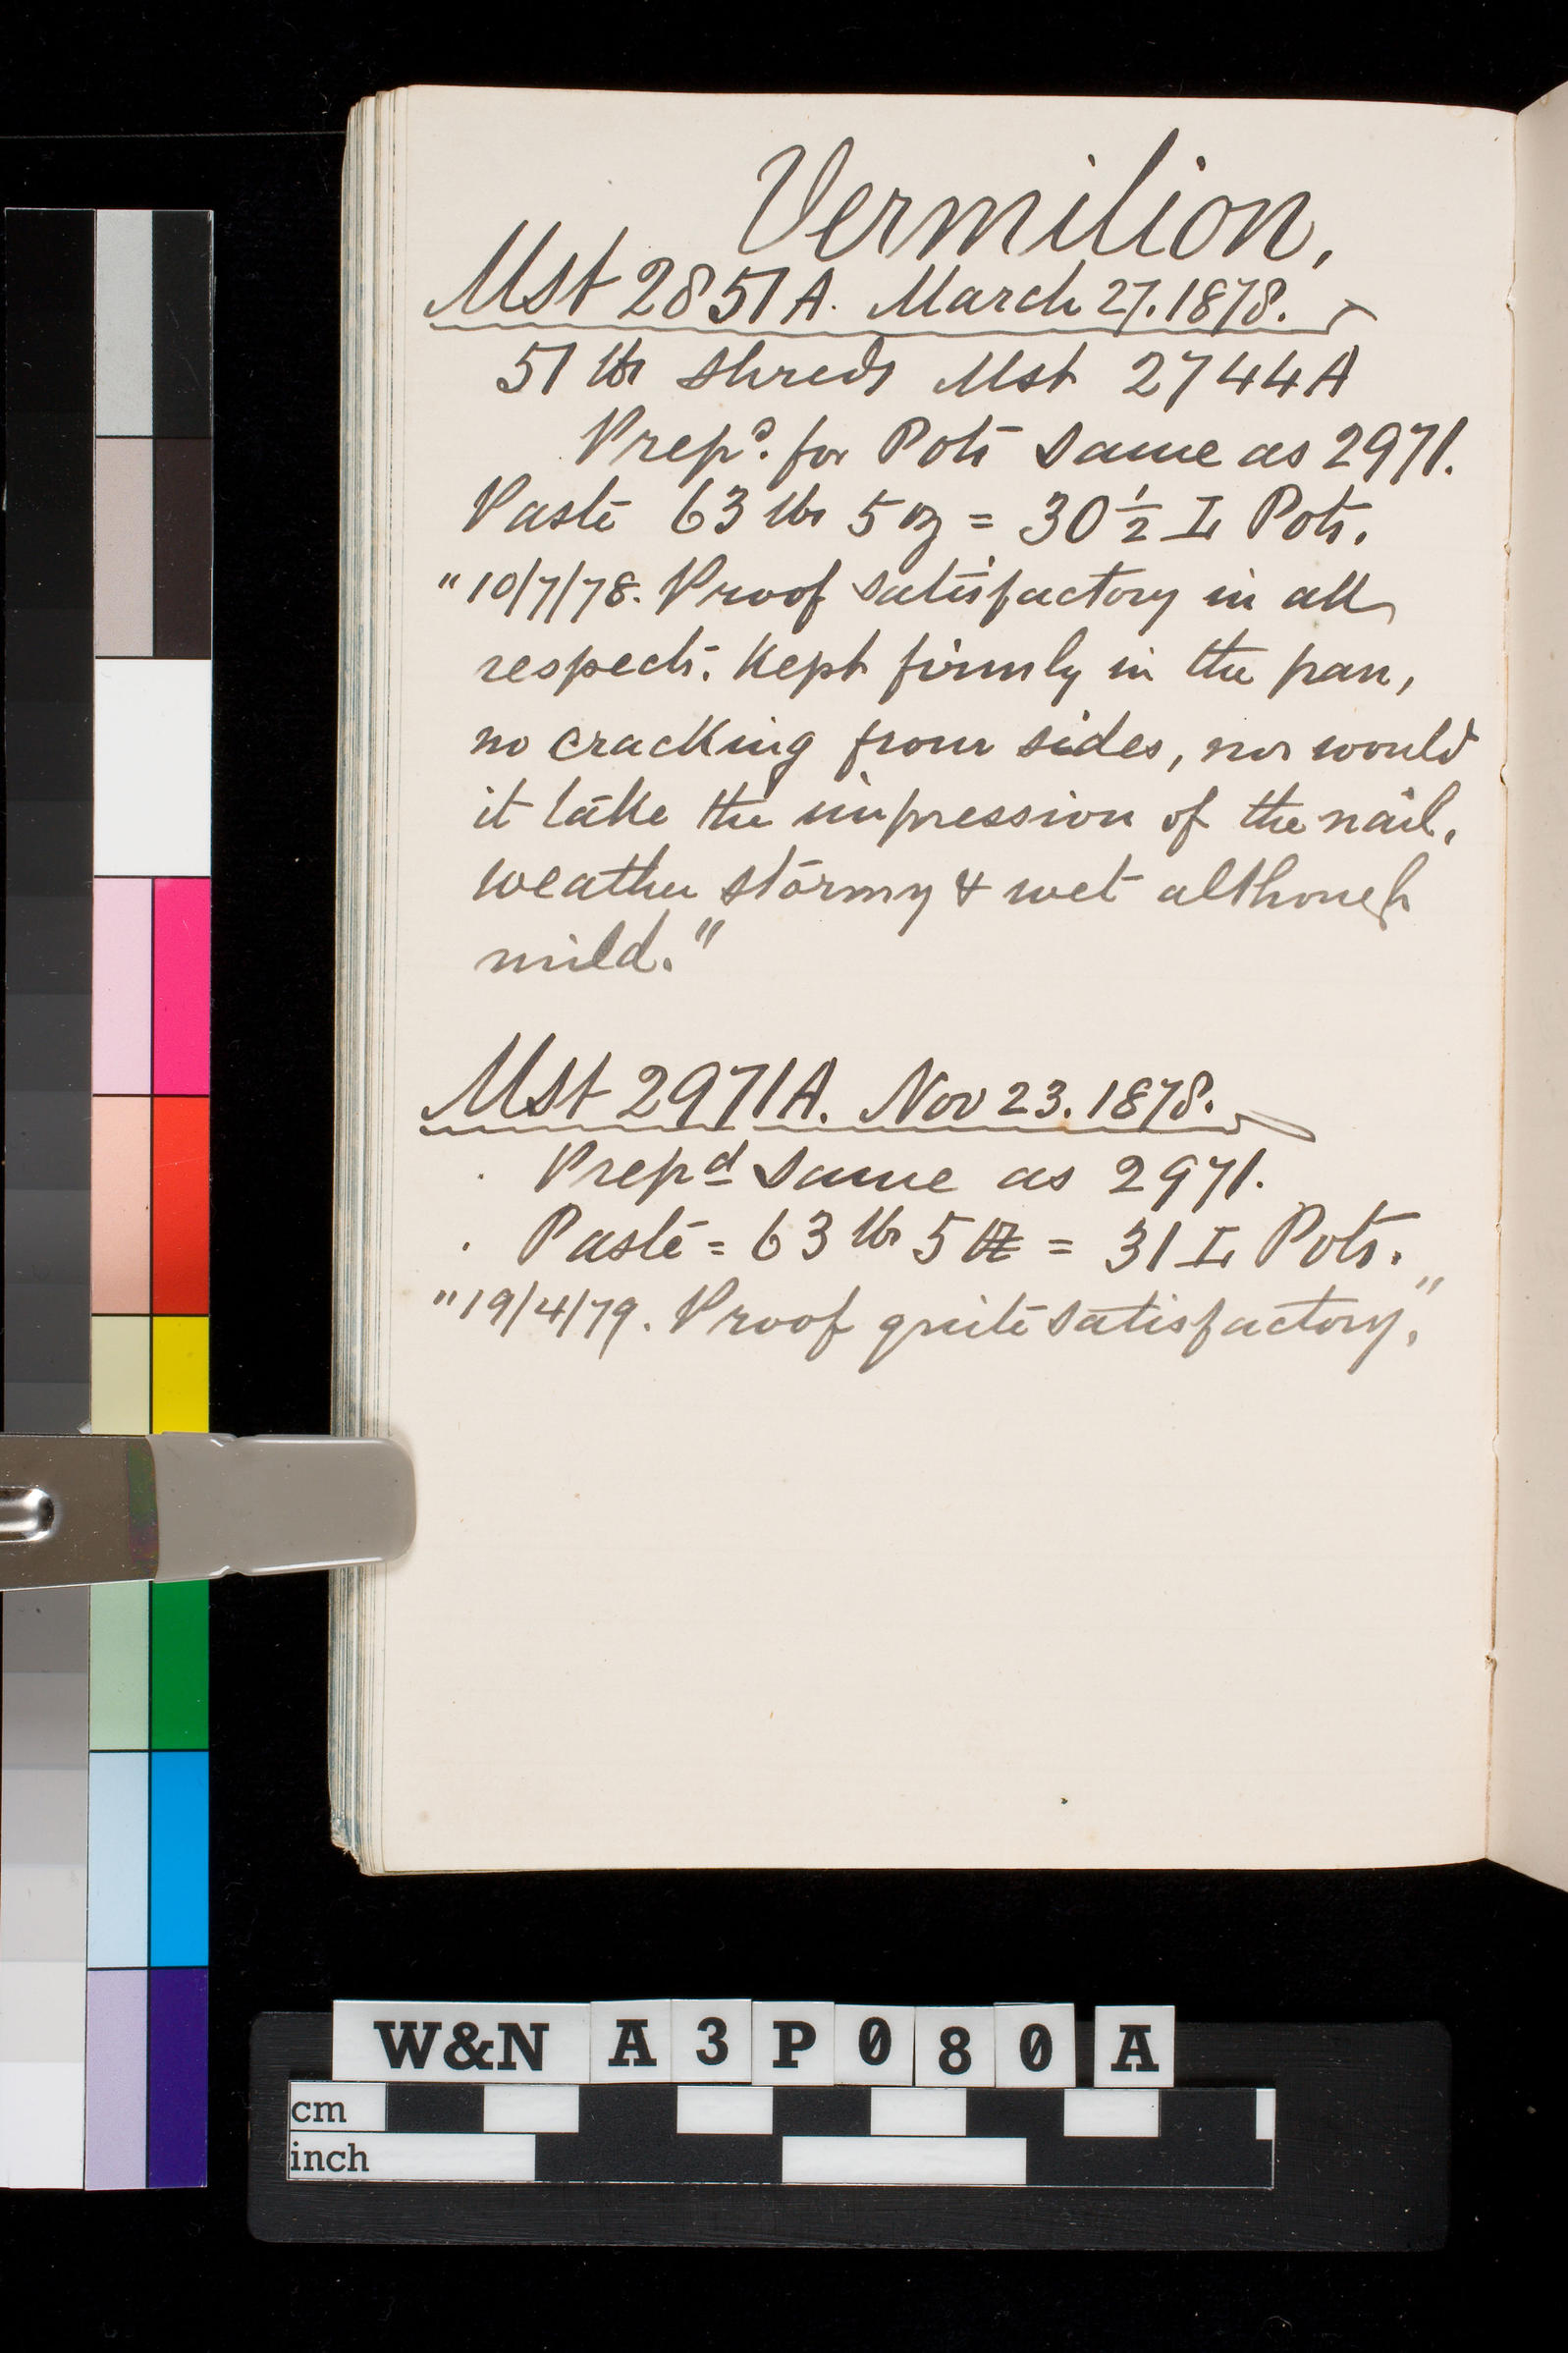 Vermilion,
Mst 2851A. March 27. 1878.
51 lbs shreds Mst 2744A
Prepd. for Pots same as 2971.
Paste 63 lbs 5 oz = 30 1/2 L Pots.
"10/7/78. Proof satisfactory in all
respects. Kept firmly in the pan,
no cracking from sides, nor would
it take the impression of the nail.
weather stormy & wet although
mild."
Mst 2971A. Nov 23. 1878.
Prepd same as 2971.
Paste = 63 lbs 5 oz = 31 L Pots.
"19/4/79. Proof quite satisfactory."
W&N A3P080A
cm
inch